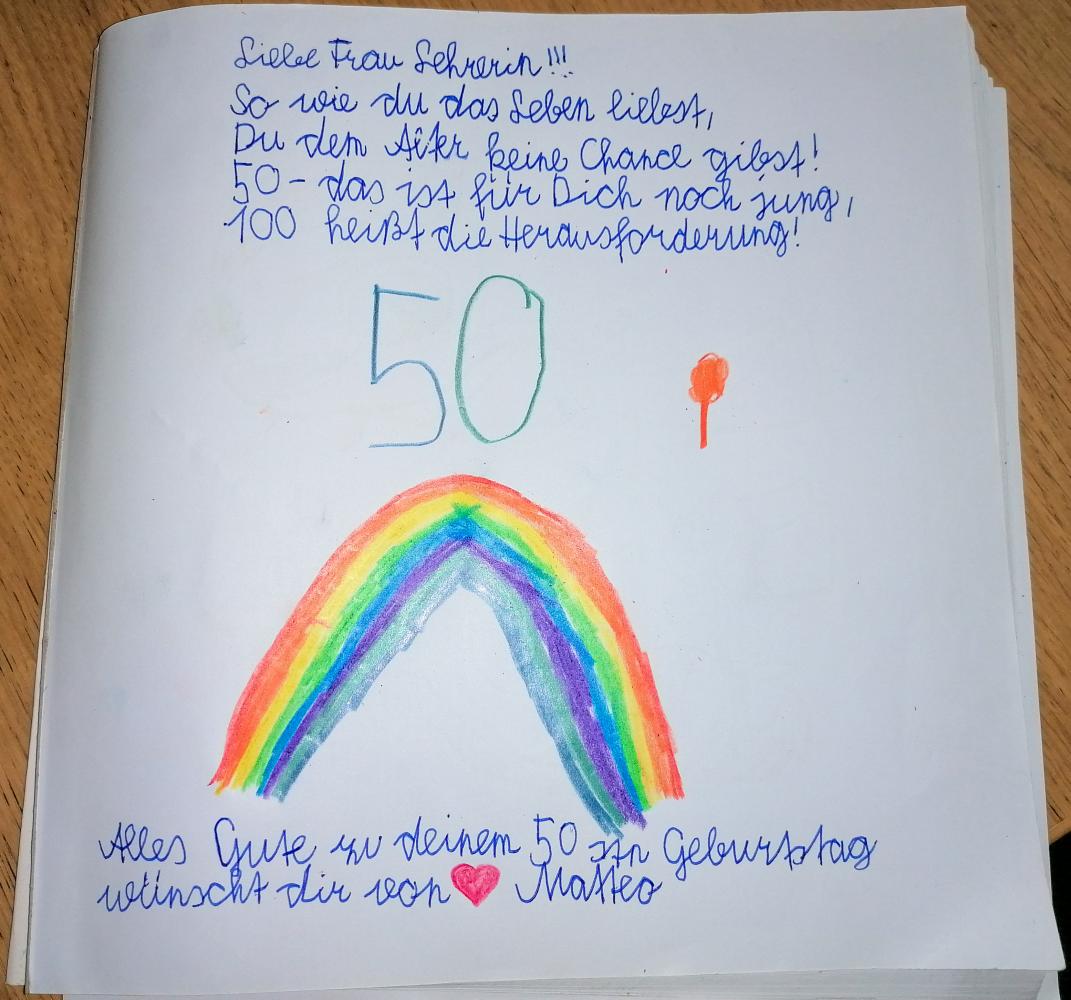 Liebe Frau Lehrerin!!!
So wie du das Leben liebst,
Du dem Alter keine Chance gibst!
50 - das ist für Dich noch jung,
100 heißt die Herausforderung!
50
Alles Gute zu deinem 50 stn Geburtstag
wünscht dir von ❤ Matteo